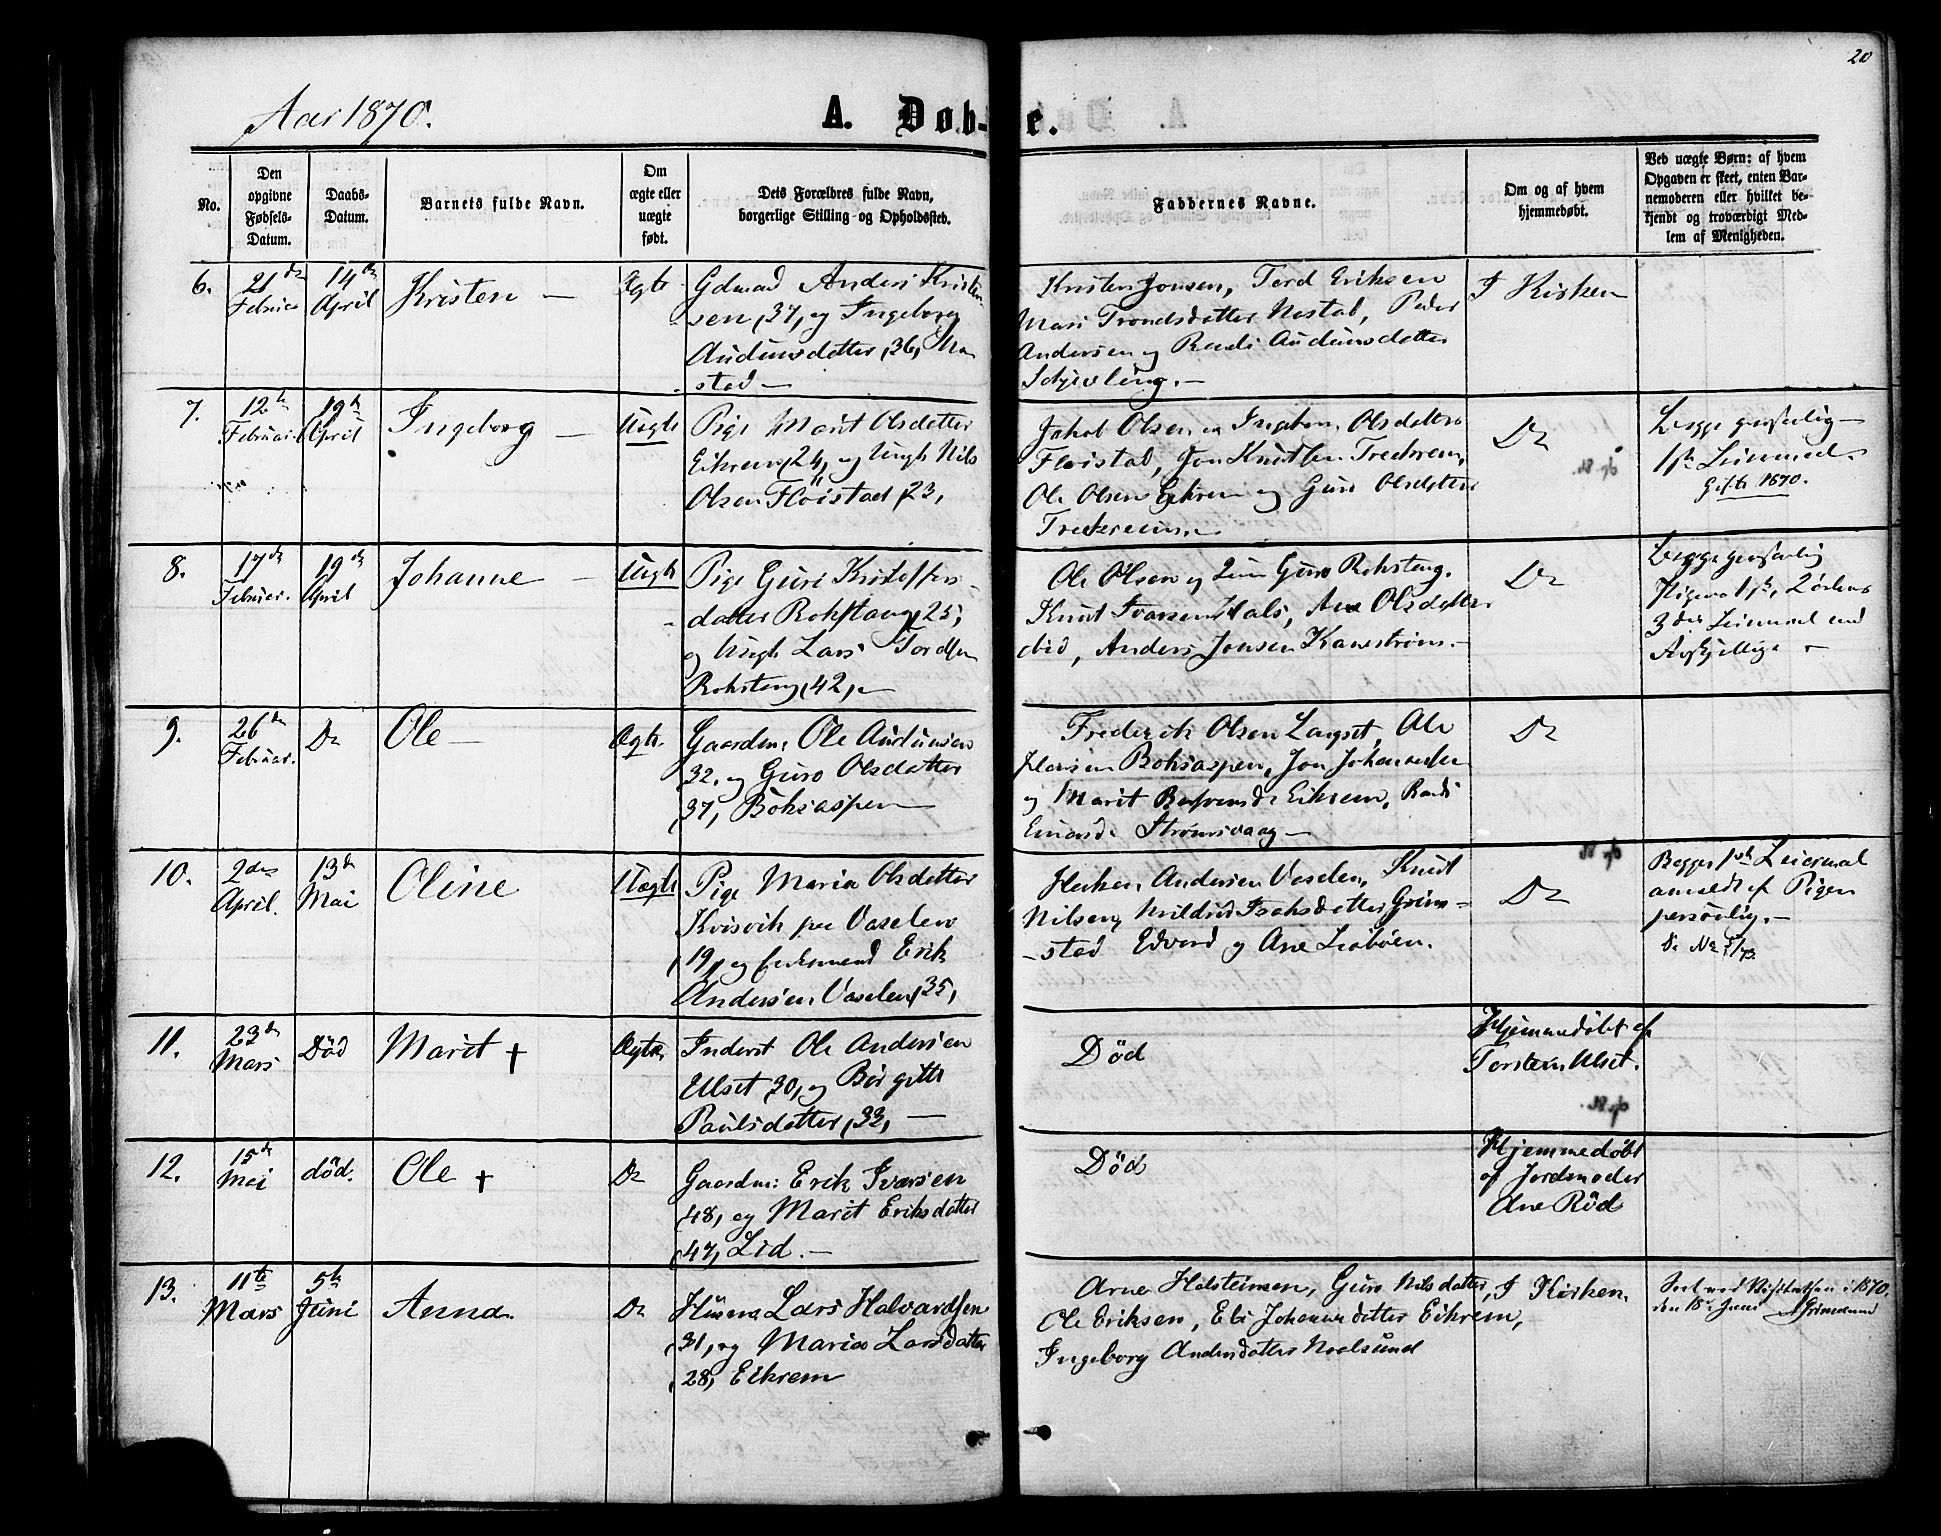 20
Aar 1870.
A. Døb- e.
No.
Den
opgivne
Fødsels-
Datum.
Daabs-
Datum.
Barnets fulde Navn.
Om
ægte eller
uægte
født.
Dets Forældres fulde Navn,
borgerlige Stilling og Opholdssted.
Faddernes Navne.
Om og af hvem
hjemmedøbt.
Ved uægte Børn: af hvem
Opgaven er skeet, enten Bar-
nemoderen eller hvilket be-
kjendt og troværdigt Med-
lem af Menigheden.
6.
21de
Februar
14de
April
Kristen —
Ægte
Gdmad Anders Kristen-
sen, 37, og Ingeborg
Audunsdatter, 36, Na-
stad —
Kristen Jonsen, Tord Eriksen
Mari Trondsdatter Nastad, Peder
Andersen og Randi Audunsdatter
Schjevling. —
I Kirken
7.
12te
Februar
19de
April
Ingeborg —
Uægte
Pige Marit Olsdatter
Eikrem, 24, og Ungk Nils
Olsen Flöistad, 23,
Jakob Olsen og Ingebor. Olsdatter
Flöistad, Jon Knutsen Tredrem,
Ole Olsen Eikrem og Guro Olsdatter
Do
1ste Leiermaal.
Gifte 1870.
8.
17de
Februar.
19de
April
Johanne —
Uægte
Pige Guri Kristoffers-
datter Rohstang, 25,
og Ungk Lars Tordsen
Rohsteng, 42, —
Ole Olsen og Guro Rohsteng.
Knut Ivarsen Hals, Ane Olsdatter
ibid, Anders Jonsen Kanestrøm. —
Do
Pigens 1ste,
3die Leiermaal med
Forskjellige —
9.
26de
Februar.
Do
Ole —
Ægte.
Gaardm. Ole Audunsen
32, og Guro Olsdatter
37, Bohsaspen —
Frederik Olsen Langset, Ole
Bohsaspen, Jon Johannesen
og Marit Eikrem, Randi
Strømsvaag —
Do
10.
2den
April.
13de
Mai
Oline
Uægte
Pige Maria Olsdatter
Kvisvik paa Vaselen
19, og Enkemand Erik
Andersen Vaselen, 35,
Haken Andersen Vaselen, Knut
Nilsen, Mildrid Isaksdatter Grim-
stad Edvard og Ane Liabøen.
Do
Begges 1ste Leiermaal
anmeldt af Pigen
personlig. —
11.
23de
Mars
Död
Marit †
Ægte.
Inderst Ole Andersen
Ulset, 30, og Birgitte
Paulsdatter, 33, —
Död
Hjemmedøbt af
Torsten Ulset.
12.
15de
Mai
död.
Ole †
Do
Gaardm: Erik Ivarsen
48, og Marit Eriksdatter
47, Lid. —
Död
Hjemmedøbt
af Jordmoder
Ane Röd
13.
11te
Mars
5te
Juni
Anna.
Do
Husm. Lars Halvardsen
31, og Maria Larsdatter
28, Eikrem
Arne Halsteinsen, Guro Nilsdatter,
Ole Eriksen, Eli Johannesdatter Eikrem,
Ingeborg Andersdatter Naalsund
I Kirken.
1870.
den 18de Juni